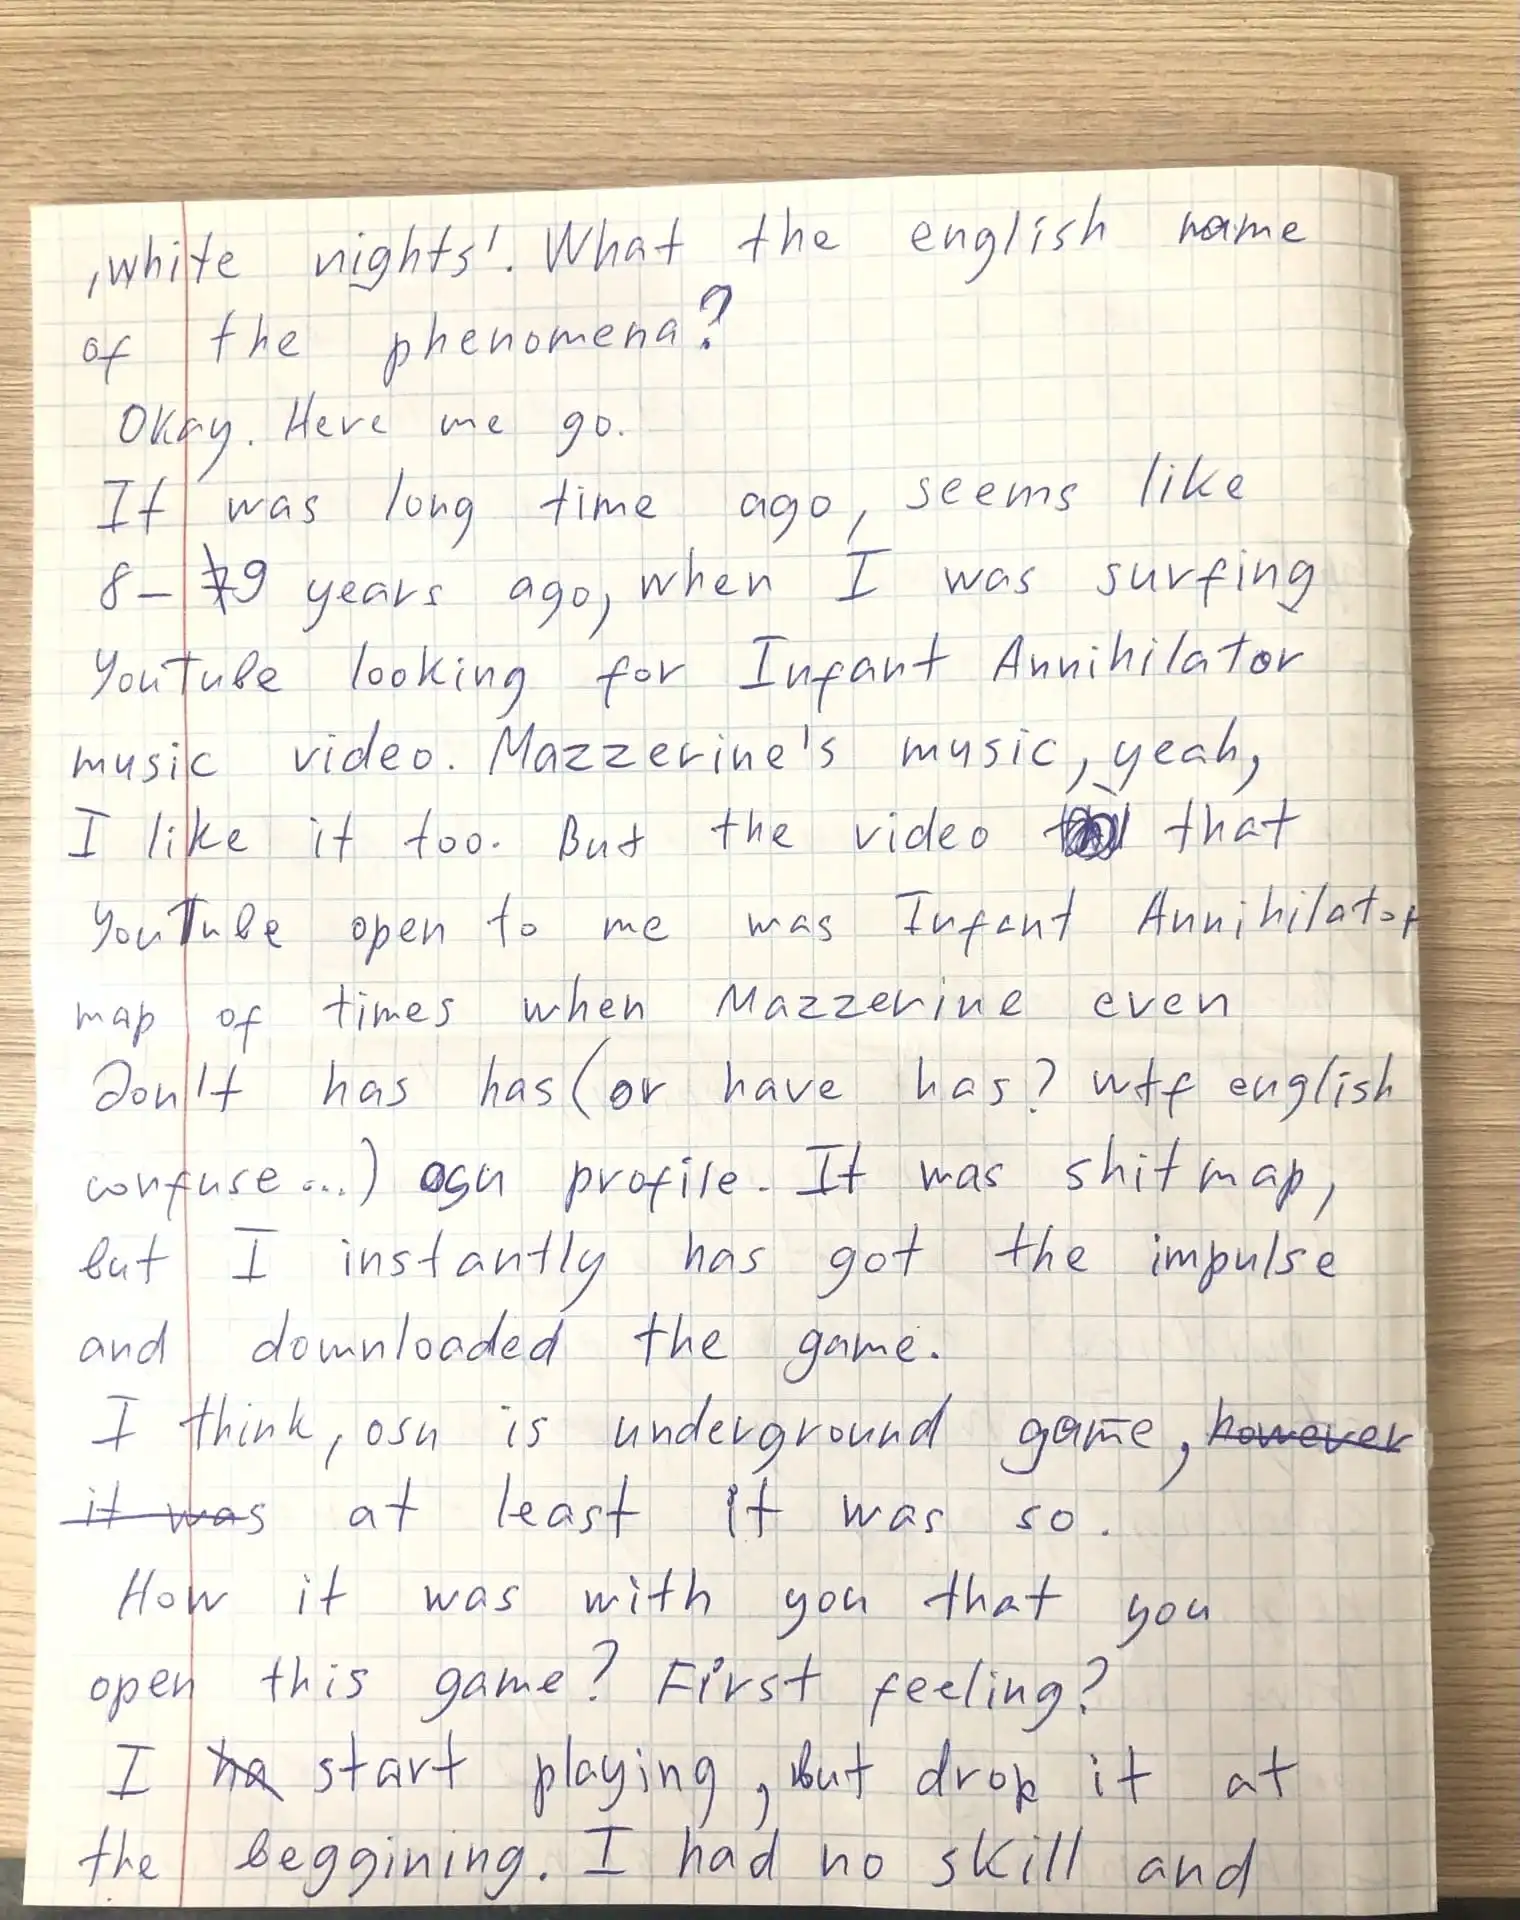 ,white nights'. What the english name
of the phenomena?
Okay. Here we go.
It was long time ago, seems like
8-9 years ago, when I was surfing
YouTube looking for Infant Annihilator
music video. Mazzerine's music, yeah,
I like it too. But the video that
YouTube open to me was Infant Annihilator
map of times when Mazzerine even
don't has has (or have has? wtf english
confuse...) osu profile. It was shitmap,
but I instantly has got the impulse
and downloaded the game.
I think, osu is underground game, however
it was at least it was so.
How it was with you that you
open this game? First feeling?
I ha start playing, but drop it at
the beggining. I had no skill and